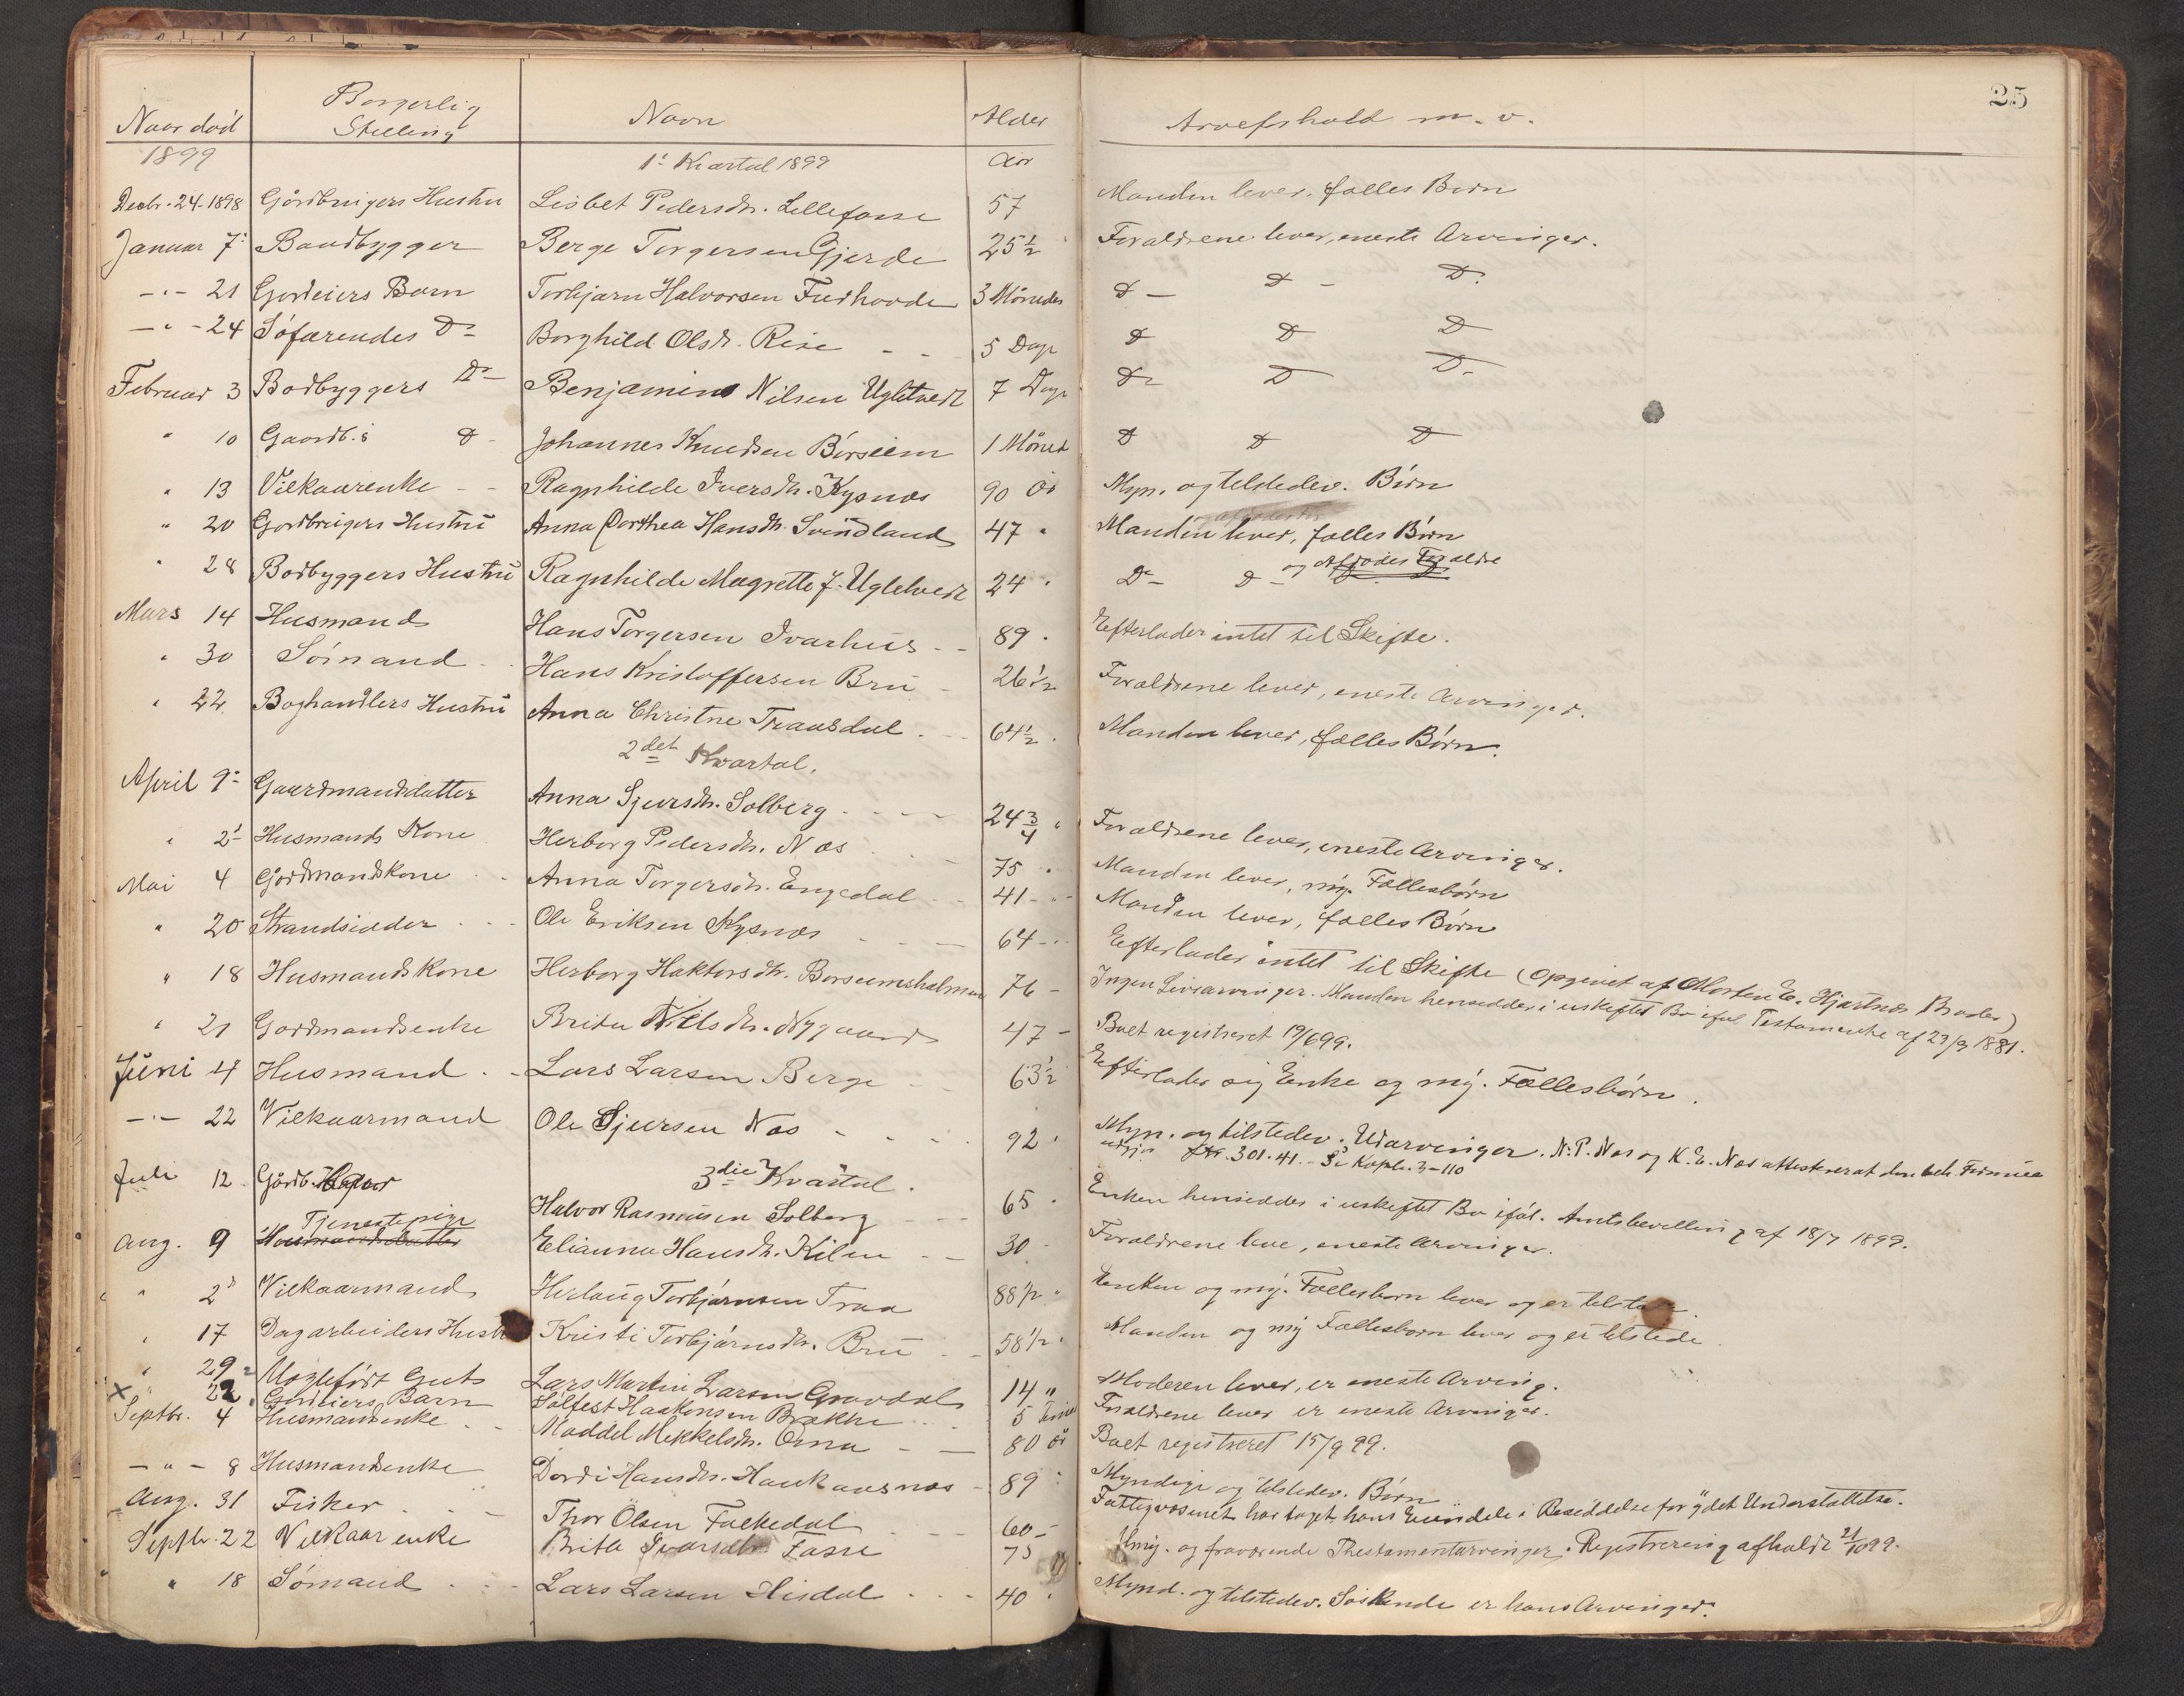 25
Naar død Borgerlig Stilling Navn Alder Arvefshold m. v.
1899 1ste Kvartal 1899 Aar
Decbr. 24-1898 Gårdbrugers Hustru Lisbet Pedersdtr. Lillefosse 57 Manden lever, fælles Børn
Januar 7 Baadbygger Berge Torgersen Gjerde 25 1/2 Forældrene lever, eneste Arvinger.
-"- 21 Gårdeiers Barn Torbjørn Halvorsen Fuehovde 3 Måneder Do - Do - Do
-"- 24 Søfarendes Do Borghild Olsdr. Rise 5 Dage Do Do Do
Februar 3 Bødbyggers Do Benjamin Nilsen Ugletvedt 7 Dage Do Do Do
" 10 Gaardb.s Do Johannes Knudsen Børseim 1 Måned Do Do Do
" 13 Vilkaarenke Ragnhilde Iversdtr. Kysnæs 90 År Myn. og tilstedev. Børn
" 20 Gårdbrugers Hustru Anna Dorthea Hansdtr. Svindland 47 " Manden lever, fælles Børn
" 28 Bødbyggers Hustru Ragnhilde Magrette J. Ugletvedt 24 " Do - Do - og Afdødes Forældre
Mars 14 Husmand Hans Torgersen Ivarhus 89 " Efterlader intet til Skifte.
" 30 Sømand Hans Kristoffersen Bru 26 1/2 Forældrene lever, eneste Arvinger.
" 22 Boghandlers Hustru Anna Christne Traasdal 64 1/2 Manden lever, fælles Børn.
2det Kvartal.
April 9 Gaardmandsdatter Anna Sjursdtr. Solberg 24 3/4 Forældrene lever, eneste Arvinger.
" 2 Husmands Kone Herborg Pedersdtr. Næs 75 Manden lever, myn. Fællesbørn
Mai 4 Gårdmandskone Anna Torgersdtr. Engedal 41 Manden lever, fælles Børn
" 20 Strandsidder Ole Eriksen Kysnæs 64 Efterlader intet til Skifte (Opgivet af Morten E. Hjartnæs Broder)
" 18 Husmandskone Herborg Haktorsdtr. Børseimsholmen 76 Ingen Livsarvinger. Manden hensidder i uskiftet Bo iføl Testamente af 23/9 1881.
" 21 Gårdmandsenke Brita Nilsdtr. Nygaard 47 Boet registreret 19/6 99.
Juni 4 Husmand Lars Larsen Berge 63 1/2 Efterlader sig Enke og my. Fællesbørn.
-"- 22 Vilkaarmand Ole Sjursen Næs 92 Myn. og tilstedev. Udarvinger. N. P. Næs og K. E. Næs attesterer at den beh. Formue
udgjør 301.41. - Kopb. 3-110
3die Kvartal.
Juli 12 Gårdb. Halvor Rasmusen Solberg 65 Enken hensidder i uskiftet Bo iføl. Amtsbevilling af 18/7 1899.
Aug. 9 Tjenestepige Elianna Hansdtr. Kilen 30 Forældrene leve, eneste Arvinger.
" 2 Vilkaarmand Herlaug Torbjørnsen Traa 88 1/2 Enken og myn. Fællesbørn lever og er tilstede.
" 17 Dagarbeiders Hustru Kristi Torbjørnsdtr. Bru 58 1/2 Manden og my Fællesbørn lever og er tilstede.
" 29 Uægtefødt Gut Lars Martin Larsen Gravdal 14 " Moderen lever, er eneste Arving.
" 22 Gårdeiers Barn Solfest Haakonsen Brække 5 Timer Forældrene lever er eneste Arvinger.
Septbr. 4 Husmandsenke Maddel Mikkelsdtr. Oma 80 År Boet registreret 15/9 99.
-"- 8 Husmandsenke Dordi Hansdtr. Haukaasnæs 89 Myndige og tilstedev. Børn
Aug. 31 Fisker Thor Olsen Folkedal 60 Fattigvæsenet har taget hans Eiendele i Besiddelse for ydet Understøttelse.
Septbr. 22 Vilkaarenke Brita Ivarsdtr. Fosse 75 Umy. og fraværende Thestamentarvinger. Registrering afholdt 21/10 99.
" 18 Sømand Lars Larsen Hisdal 40 Mynd. og tilstedev. Søskende er hans Arvinger.